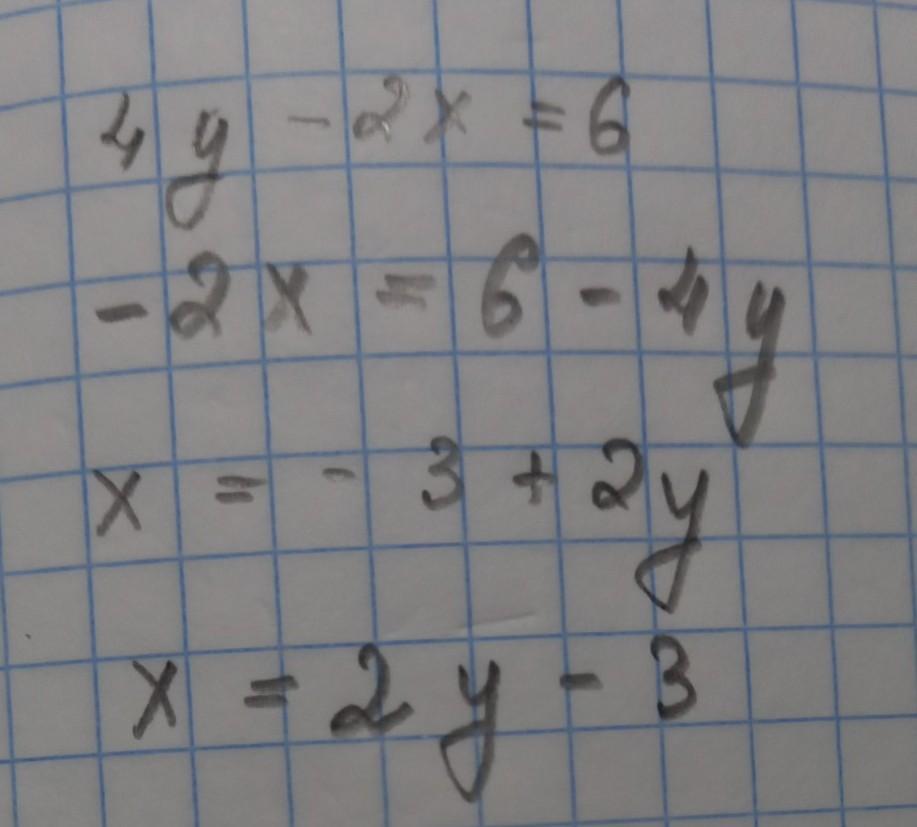 4y - 2x = 6
-2x = 6 - 4y
x = - 3 + 2y
x = 2y - 3